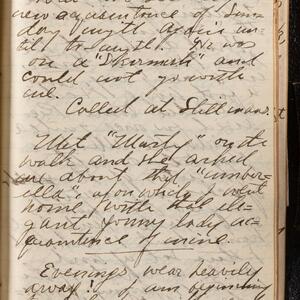 new acquaintence of Sun-
day night. Again un-
til to-night. Geo. was
on a "Skirmish" and
could not go with
me.
Called at Stillmans.
Met "Musty" on the
walk and she asked
me about that "umber-
ella", upon which I went
home with that ele-
gant young lady ac-
quaintence of mine.
Evenings wear heavily
away! I am beginning